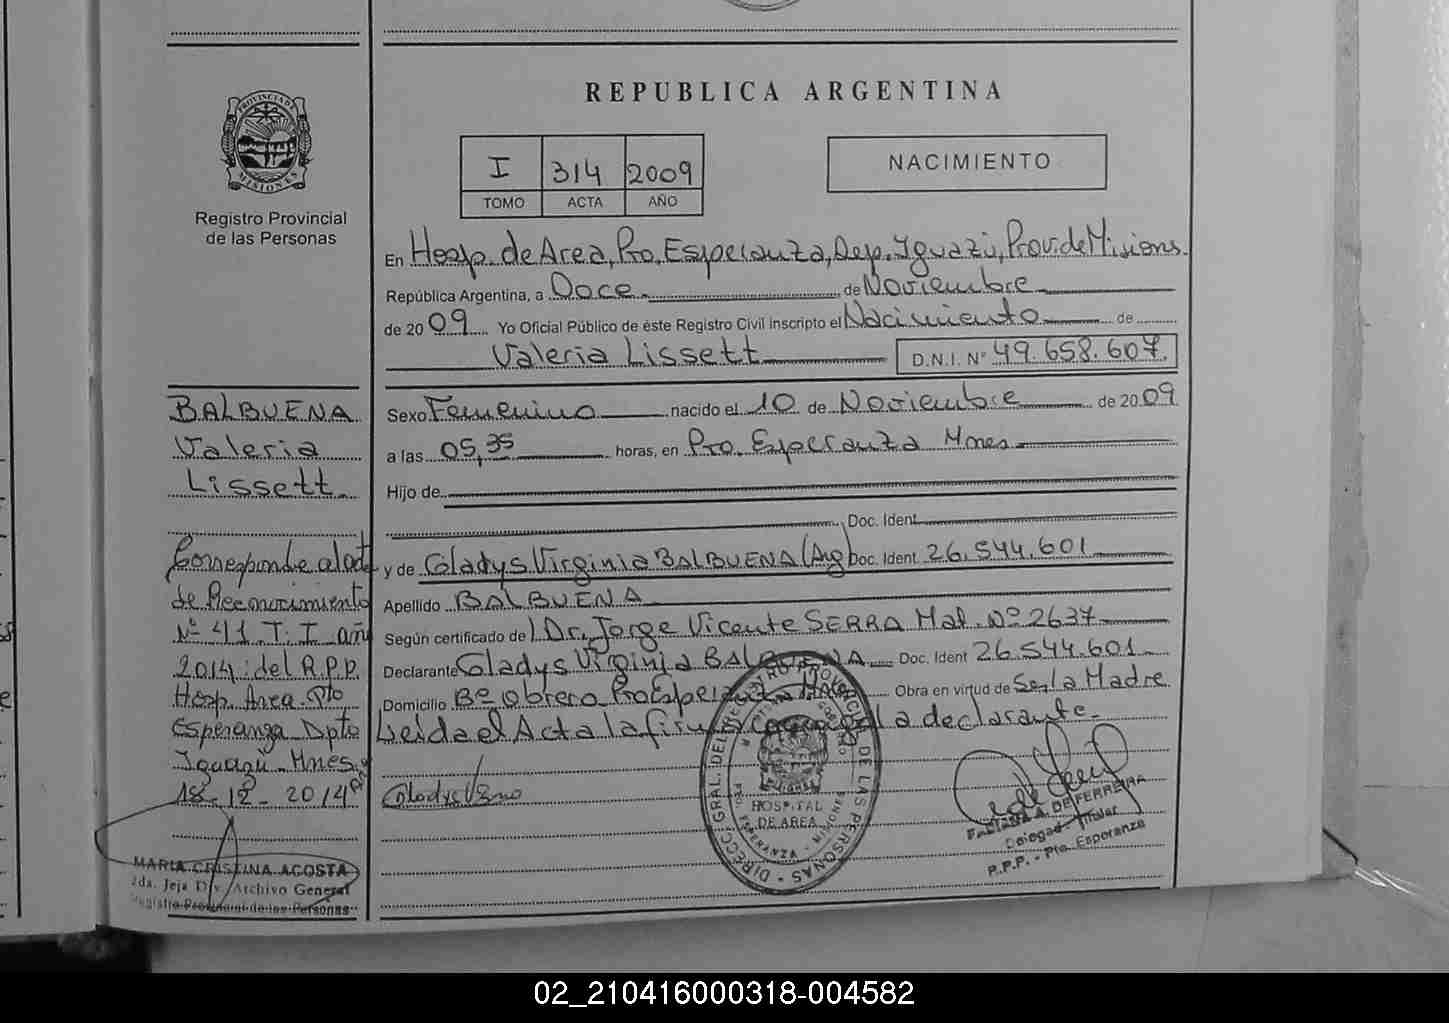 REPUBLICA ARGENTINA
PROVINCIA DE
MISIONES
Registro Provincial
de las Personas
I 314 2009
TOMO ACTA AÑO
NACIMIENTO
En Hosp. de Area, Pto, Esperanza, Dep. Iguazú, Prov. de Misiones.
República Argentina, a Doce de Noviembre
de 20 09 Yo Oficial Público de éste Registro Civil inscripto el Nacimiento de
Valeria Lissett D.N.I. N° 49.658.607.
BALBUENA
Valeria
Lissett
Corresponde al acta
de Reconocimiento
N° 41 T. I año
2014 del R.P.P.
Hosp. Area. Pto
Esperanza Dpto
Iguazú - Mnes.
18-12-2014
MARIA CRISTINA ACOSTA
2da. Jefa Div. Archivo General
Registro Provincial de las Personas
Sexo Femenino nacido el 10 de Noviembre de 20 09
a las 05,35 horas, en Pto. Esperanza Mnes
Hijo de
Doc. Ident
y de Gladys Virginia BALBUENA (Arg) Doc. Ident 26.544.601
Apellido BALBUENA
Según certificado de Dr. Jorge Vicente SERRA Mat. N° 2637
Declarante Gladys Virginia BALBUENA Doc. Ident 26.544.601
Domicilio B° Obrero Pto Esperanza Obra en virtud de Ser la Madre
Leida el Acta la firma conmigo la declarante.
DIRECC. GRAL. DEL REGISTRO PROVINCIAL DE LAS PERSONAS
HOSPITAL
DE AREA
PTO. ESPERANZA - MISIONES
FABIANA A. DE FERREIRA
Delegada Titular
R.P.P. - Pto. Esperanza
02_210416000318-004582